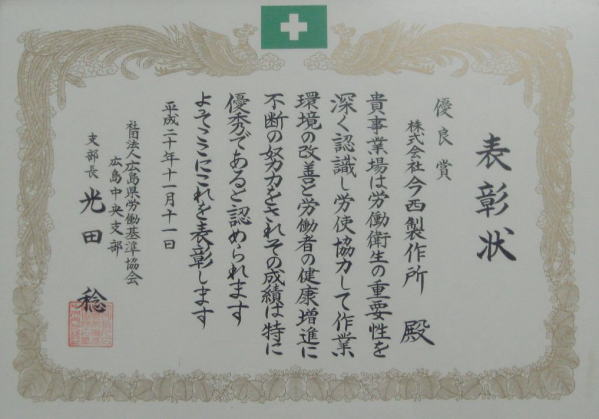 表彰状
優良賞
株式会社今西製作所 殿
貴事業場は労働衛生の重要性を
深く認識し労使協力して作業
環境の改善と労働者の健康増進に
不断の努力をされその成績は特に
優秀であると認められます
よってここにこれを表彰します
平成二十年十一月十一日
社団法人広島県労働基準協会
広島中央支部
支部長 光田 稔